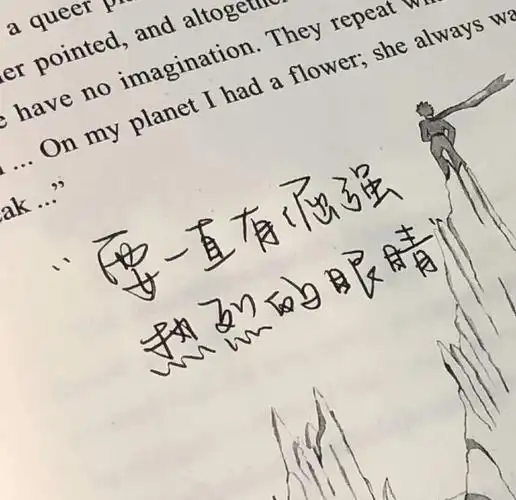 a queer
er pointed, and altogether
have no imagination. They repeat
... On my planet I had a flower; she always
ak ...”
“要一直有倔强
热烈的眼睛”